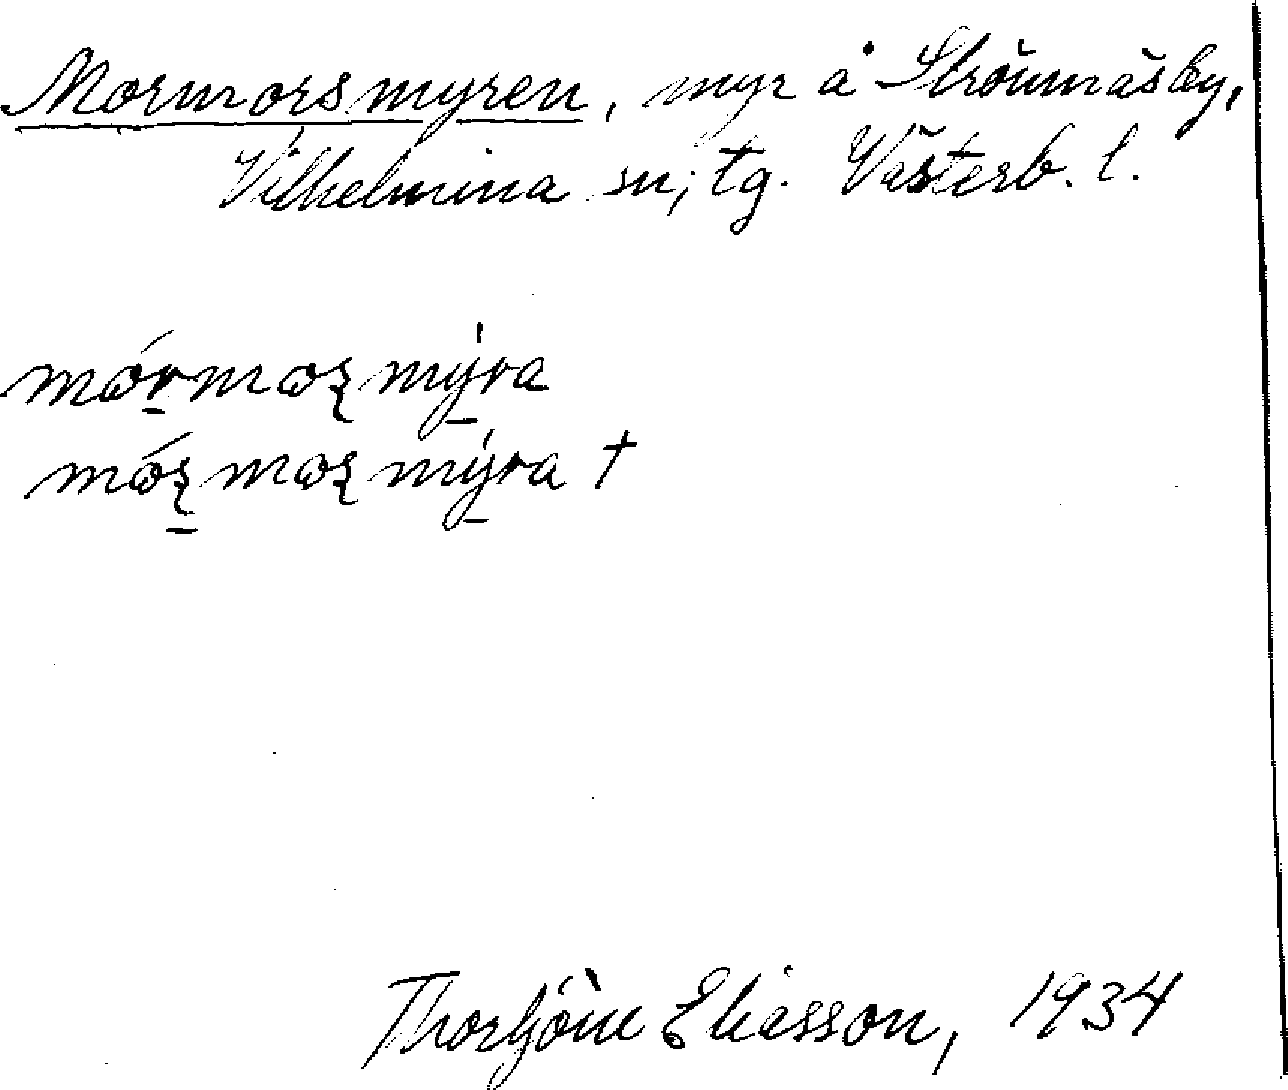 Mormorsmyren, myr å Strömnäs by,
Vilhelmina sn; tg. Västerb. l.
mórmoʂmýra
móʂmoʂmýra †
Thorbjörn Eliasson, 1934